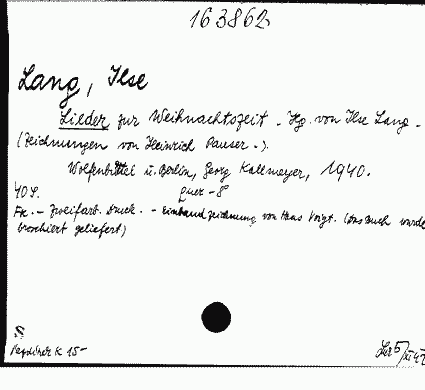 163862
Lang, Ilse
Lieder zur Weihnachtszeit. Hg. von Ilse Lang.
(Zeichnungen von Heinrich Pauser.).
Wolfenbüttel u. Berlin, Georg Kallmeyer, 1940.
40 S. quer-8
Fr. - Zweifarb. Druck. - Einbandzeichnung von Hans Voigt. (Das Buch wurde
broschiert geliefert)
S
K 15-
5/XI 42